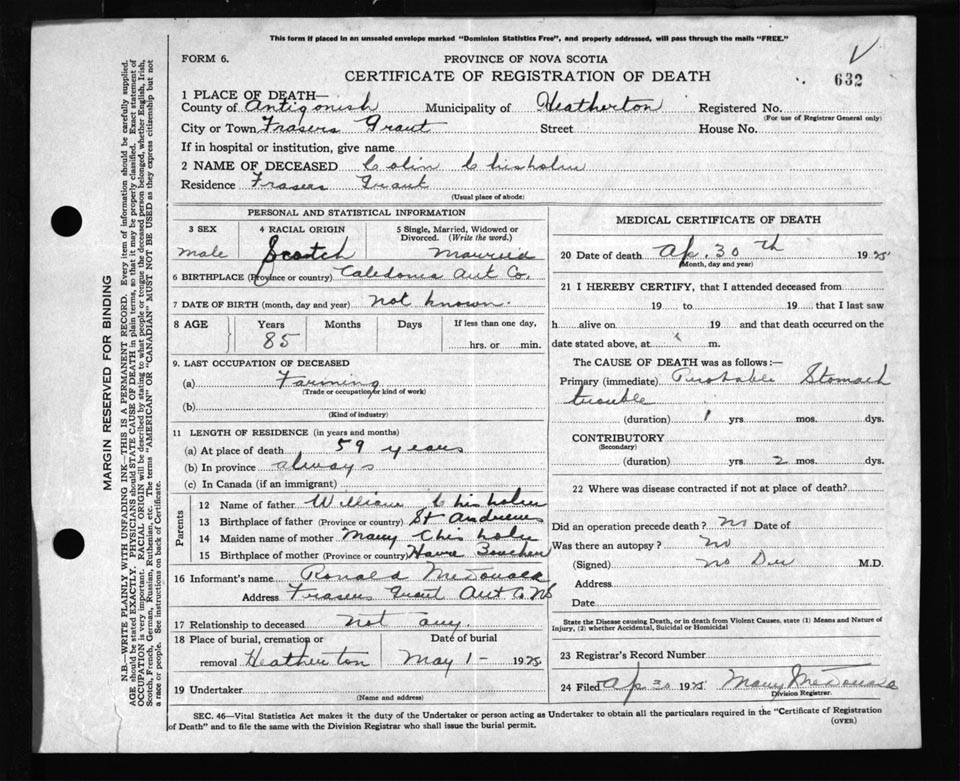 This form if placed in an unsealed envelope marked "Dominion Statistics Free", and properly addressed, will pass through the mails "FREE."
FORM 6.
PROVINCE OF NOVA SCOTIA
CERTIFICATE OF REGISTRATION OF DEATH
632
1 PLACE OF DEATH—
County of Antigonish Municipality of Heatherton Registered No.
(For use of Registrar General only)
City or Town Frasers Grant Street House No.
If in hospital or institution, give name
2 NAME OF DECEASED Colin Chisholm
Residence Frasers Grant
(Usual place of abode)
PERSONAL AND STATISTICAL INFORMATION
3 SEX 4 RACIAL ORIGIN 5 Single, Married, Widowed or Divorced. (Write the word.)
male Scotch Married
6 BIRTHPLACE (Province or country) Caledonia Ant Co.
7 DATE OF BIRTH (month, day and year) not known.
8 AGE Years Months Days If less than one day,
85 hrs. or min.
9. LAST OCCUPATION OF DECEASED
(a) Farming
(Trade or occupation or kind of work)
(b)
(Kind of industry)
11 LENGTH OF RESIDENCE (in years and months)
(a) At place of death 59 years
(b) In province always
(c) In Canada (if an immigrant)
Parents
12 Name of father William Chisholm
13 Birthplace of father (Province or country) St Andrews
14 Maiden name of mother Mary Chisholm
15 Birthplace of mother (Province or country) Havre Boucher
16 Informant's name Ronald McDonald
Address Frasers Grant Ant Co NS
17 Relationship to deceased not any.
18 Place of burial, cremation or removal Date of burial
Heatherton May 1 - 1925
19 Undertaker
(Name and address)
MEDICAL CERTIFICATE OF DEATH
20 Date of death Ap. 30 th 1925
(Month, day and year)
21 I HEREBY CERTIFY, that I attended deceased from
19 to 19 that I last saw
h alive on 19 and that death occurred on the
date stated above, at m.
The CAUSE OF DEATH was as follows:—
Primary (immediate) Probable Stomach
trouble
(duration) 1 yrs. mos. dys.
CONTRIBUTORY
(Secondary)
(duration) yrs. 2 mos. dys.
22 Where was disease contracted if not at place of death?
Did an operation precede death? no Date of
Was there an autopsy? no
(Signed) no M.D.
Address
Date
State the Disease causing Death, or in death from Violent Causes, state (1) Means and Nature of
Injury, (2) whether Accidental, Suicidal or Homicidal
23 Registrar's Record Number
24 Filed Ap 30 1925 Mary McDonald
Division Registrar.
SEC. 46—Vital Statistics Act makes it the duty of the Undertaker or person acting as Undertaker to obtain all the particulars required in the "Certificate of Registration
of Death" and to file the same with the Division Registrar who shall issue the burial permit.
(OVER)
MARGIN RESERVED FOR BINDING
N.B.—WRITE PLAINLY WITH UNFADING INK—THIS IS A PERMANENT RECORD. Every item of information should be carefully supplied.
AGE should be stated EXACTLY. PHYSICIANS should STATE CAUSE OF DEATH in plain terms, so that it may be properly classified. Exact statement of
OCCUPATION is very important. RACIAL ORIGIN will be described by stating to what people or tongue the deceased person belonged, whether English, Irish,
Scotch, French, German, Russian, Ruthenian, etc. The terms "AMERICAN" OR "CANADIAN" MUST NOT BE USED as they express citizenship but not
a race or people. See instructions on back of Certificate.